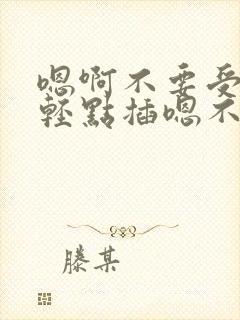 嗯啊不要受
輕點插嗯不
滕某